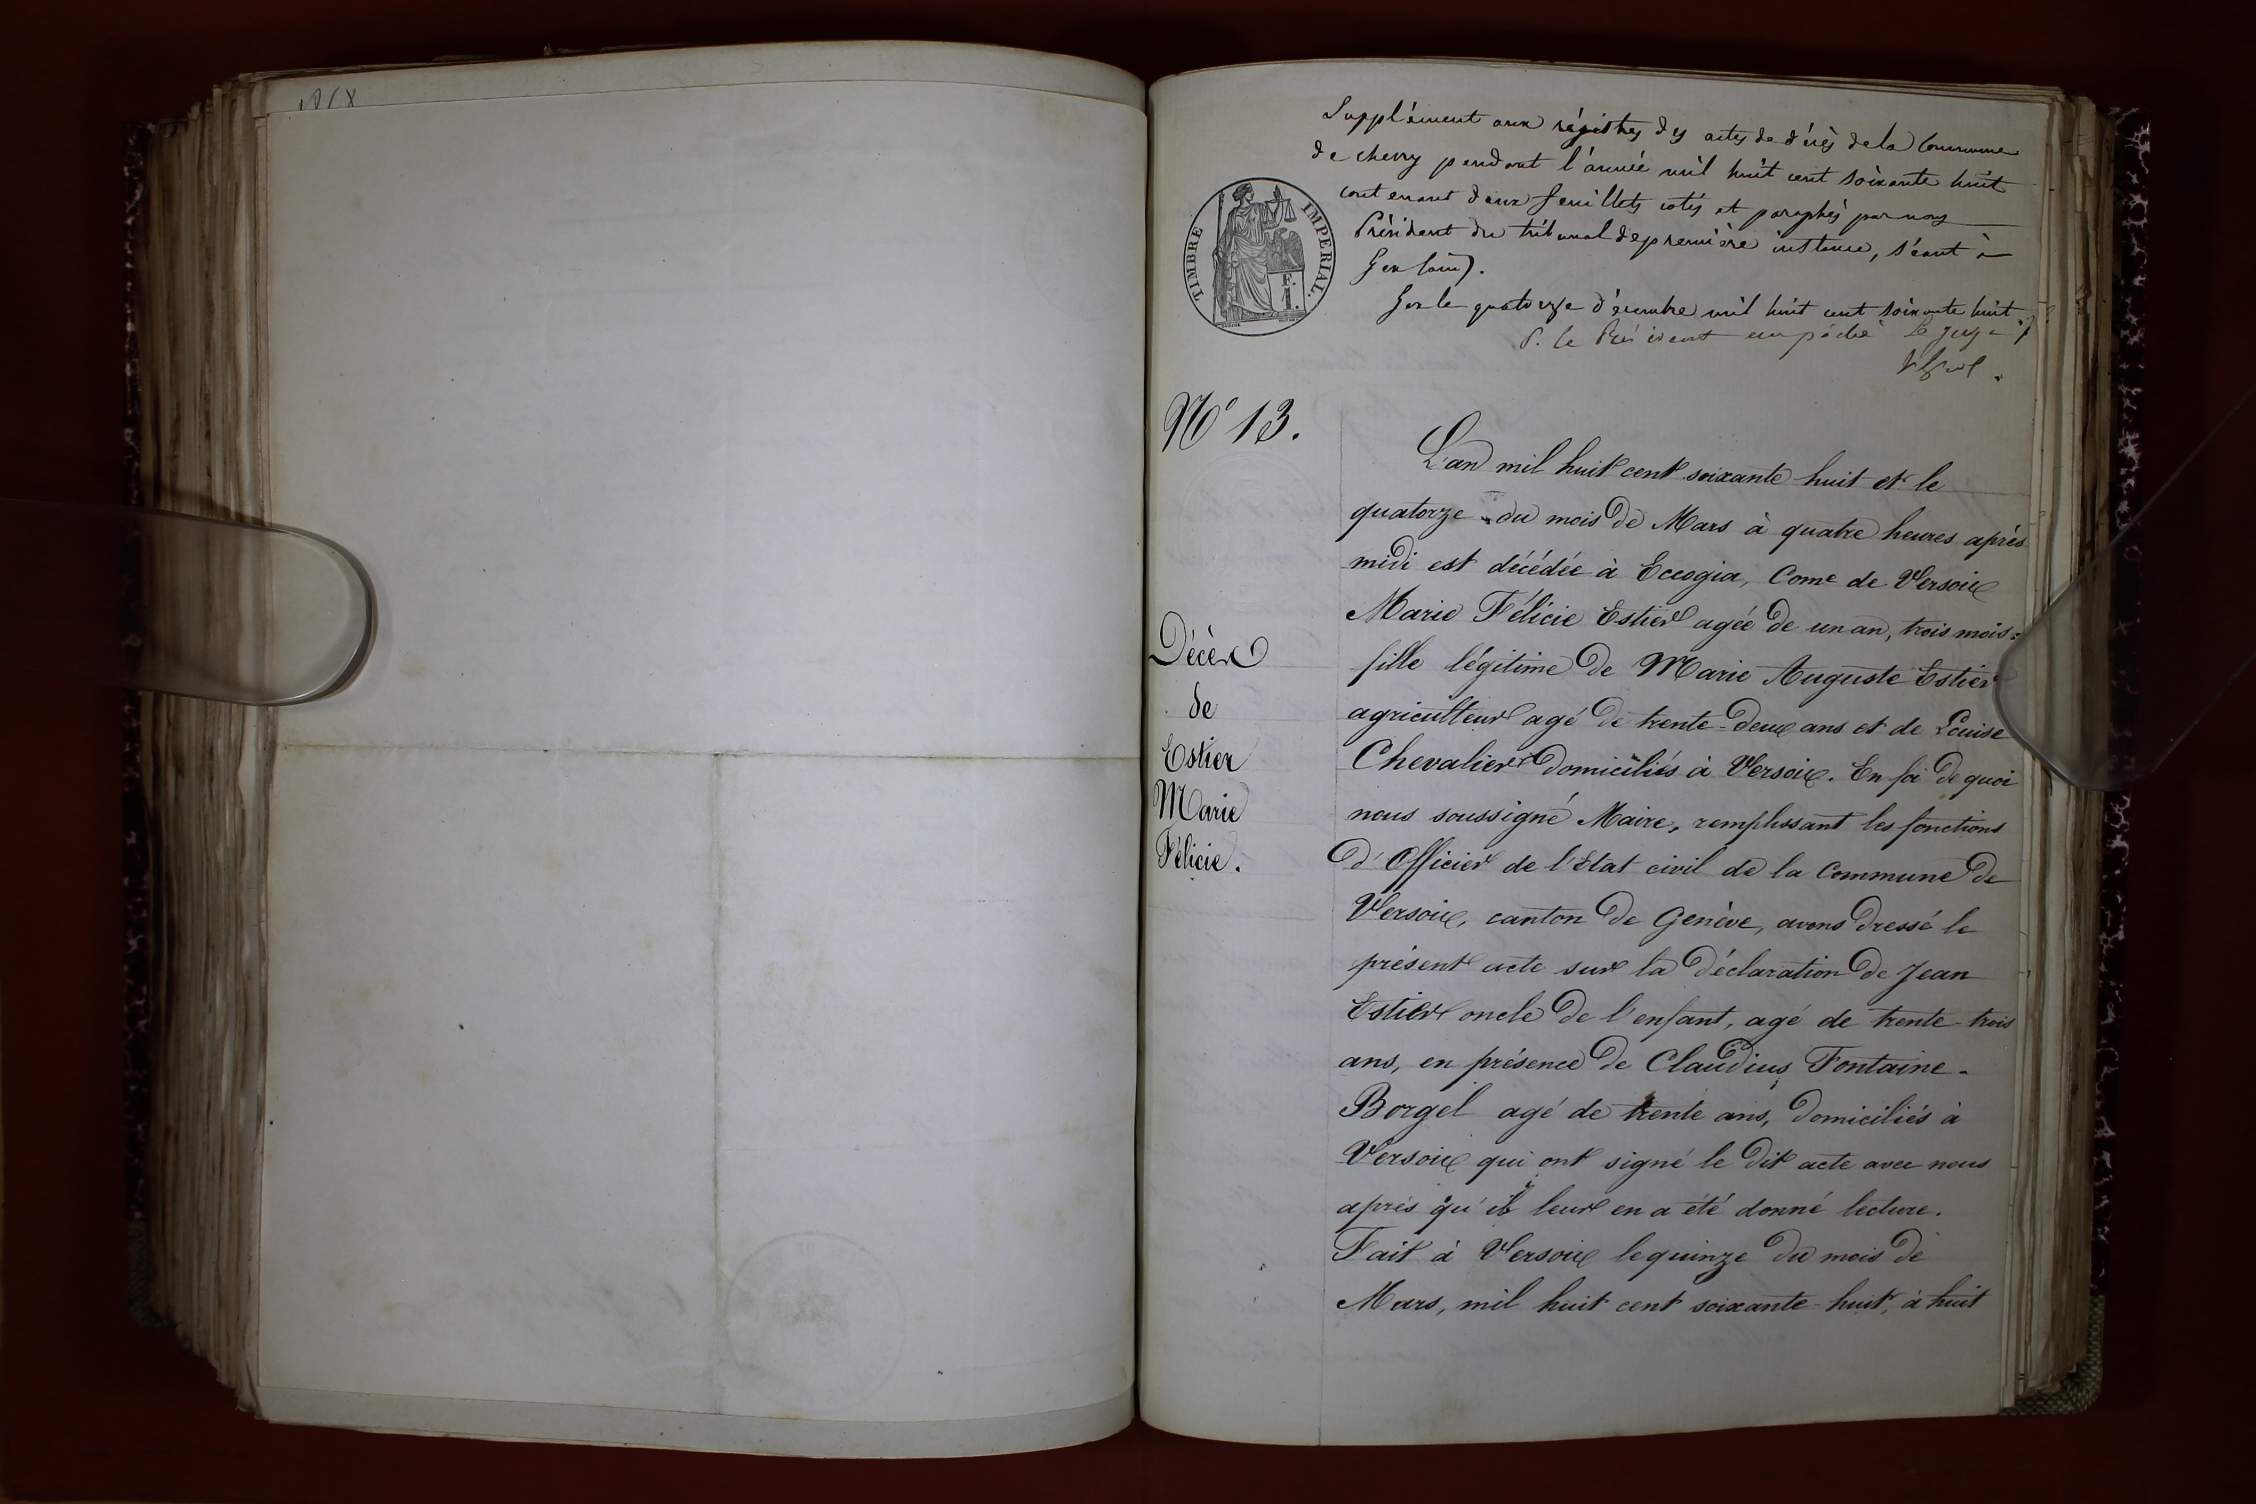 1868
Supplément aux régistres des actes de décès de la Commune
de chevry pendant l'année mil huit cent soixante huit
contenant deux feuillets cotés et paraphés par nous
Président du tribunal de première instance, séant à
Gex (ain).
Gex le quatorze décembre mil huit cent soixante huit
P. le Président empêché Le Juge
TIMBRE IMPERIAL.
N° 13.
Décès
de
Estier
Marie
Félicie.
L'an mil huit cent soixante huit et le
quatorze du mois de Mars à quatre heures après
midi est décédée à Eccogia, Come de Versoix
Marie Félicie Estier agée de un an, trois mois
fille légitime de Marie Auguste Estier
agriculteur agé de trente-deux ans et de Louise
Chevalier domiciliés à Versoix. En foi de quoi
nous soussigné Maire, remplissant les fonctions
d'Officier de l'Etat civil de la Commune de
Versoix, canton de Genève, avons dressé le
présent acte sur la déclaration de Jean
Estier oncle de l'enfant, agé de trente-trois
ans, en présence de Claudius Fontaine-
Borgel agé de trente ans, domiciliés à
Versoix qui ont signé le dit acte avec nous
après qu'il leur en a été donné lecture.
Fait à Versoix le quinze du mois de
Mars, mil huit cent soixante-huit, à huit